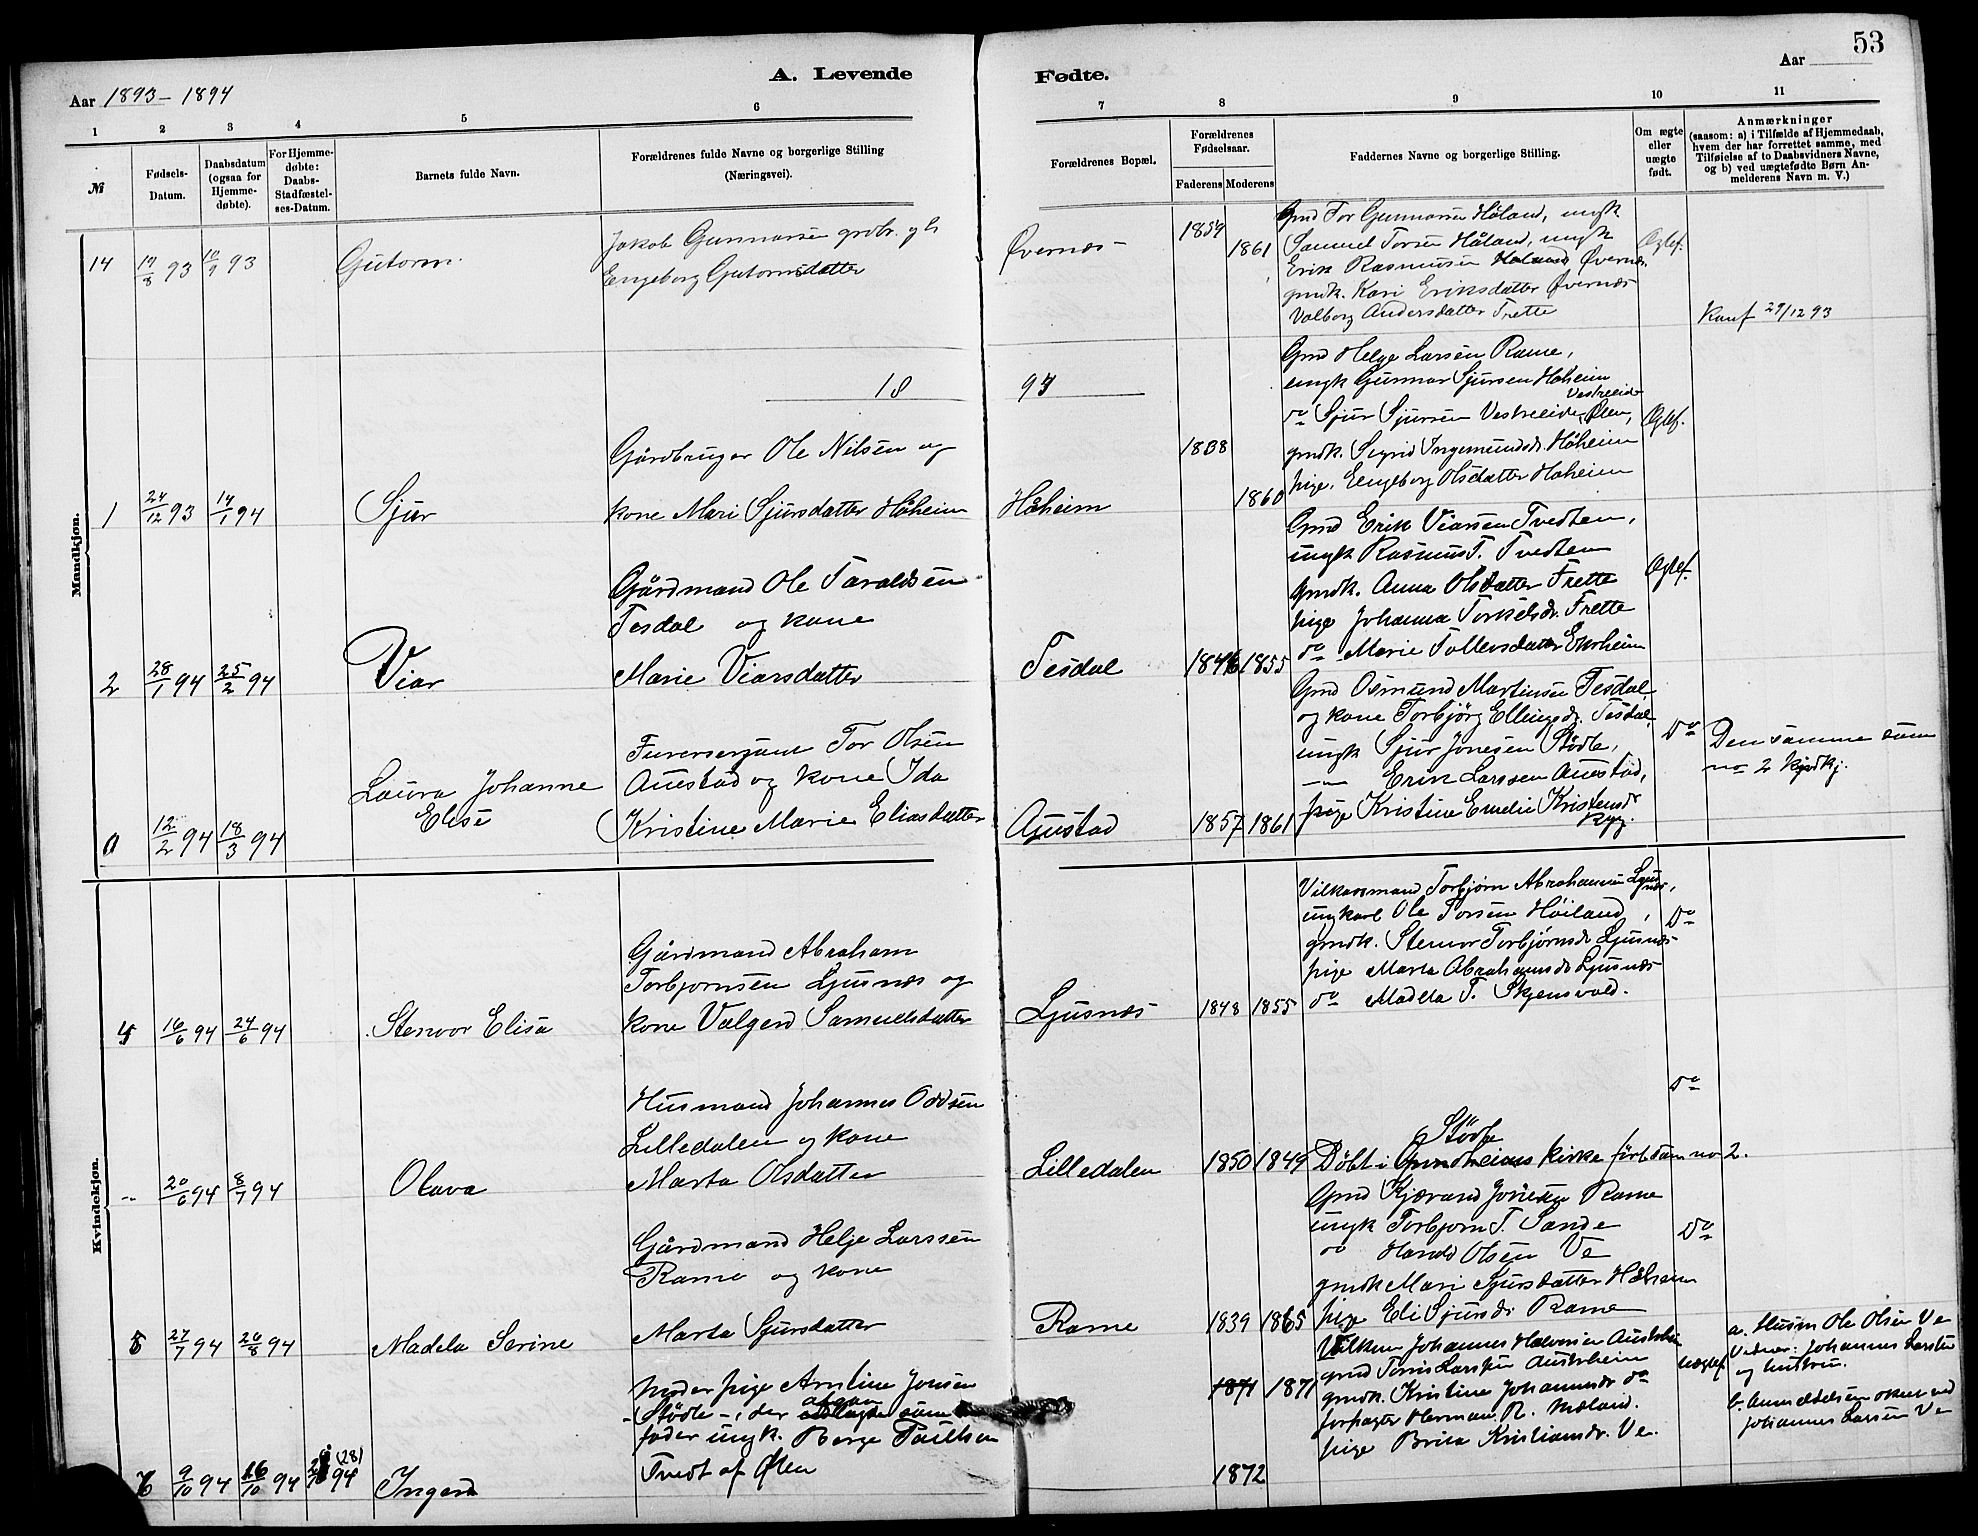 53
A. Levende
Fødte.
Aar 1893-1894
Aar
1 2 3 4 5 6 7 8 9 10 11
№
Fødsels-
Datum.
Daabsdatum
(ogsaa for
Hjemme-
døbte).
For Hjemme-
døbte:
Daabs-
Stadfæstel-
ses-Datum.
Barnets fulde Navn.
Forældrenes fulde Navne og borgerlige Stilling
(Næringsvei).
Forældrenes Bopæl.
Forældrenes
Fødselsaar.
Faderens
Moderens
Faddernes Navne og borgerlige Stilling.
Om ægte
eller
uægte
født.
Anmærkninger
(saasom: a) i Tilfælde af Hjemmedaab,
hvem der har forrettet samme, med
Tilføielse af to Daabsvidners Navne,
og b) ved uægtefødte Børn An-
melderens Navn m. V.)
Mandkjøn.
14 19/8 93 10/9 93
Gutorm.
Jakob Gunnarsen grdbr. og h
Engeborg Gutormsdatter
Øvernæs
1859
1861
Gmd Tor Gunnarsen Håland, ungk
Samuel Torsen Håland, ungk
Erik Rasmussen Øvernæs.
gmdk. Kari Eriksdatter Øvernæs
Valborg Andersdatter Frette
Ægtef.
Konf 29/12 93
18
94
1 24/12 93 14/1 94
Sjur
Gårdbruger Ole Nilsen og
kone Mari Sjursdatter Håheim
Håheim
1838
1860
Gmd Helge Larsen Rame,
ungk Gunnar Sjursen Håheim
do Sjur Sjursen Vestreeide, Ølen,
gmdk. Sigrid Ingemundsdr. Håheim
pige. Engeborg Olsdatter Håheim
Ægtef.
2 28/1 94 25/2 94
Viar
Gårdmand Ole Taraldsen
Tesdal og kone
Marie Viarsdatter
Tesdal
1846 1855
Gmd Erik Viarsen Tvedten,
ungk Rasmus T. Tvedten
gmdk. Anna Olsdatter Frette
pige Johanna Torkelsdr. Frette
do Marie Tollevsdatter
Ægtef.
0 12/2 94 18/3 94
Laura Johanne
Elise
Furersersjant Tor Olsen
Auestad og kone Ida
Kristine Marie Eliasdatter
Auestad
1857 1861
Gmd Osmund Martinsen Tesdal
og kone Torbjørg Ellingsdr. Tesdal,
ungk Sjur Jonesen Stødle,
— Erik Larssen Auestad,
pige Kristine Emelie Kristensdr
Do
Den samme som
no 2 kvindkj.
Kvindekjøn.
4 16/6 94 24/6 94
Stenvor Elisa
Gårdmand Abraham
Torbjørnsen Ljusnæs og
kone Valgerd Samuelsdatter
Ljusnæs
1848 1855
Vilkaarsmand Torbjørn Abrahamsen Ljusnæs,
ungkarl Ole Torsen Høiland,
gmdk. Stenvor Torbjørnsdr Ljusnæs
pige Marta Abrahamsdr Ljusnæs
do Madela T. Skjensvold.
Do
" 20/6 94 8/7 94
Olava
Husmand Johannes Oddsen
Lilledalen og kone
Marta Olsdatter
Lilledalen
1850 1849
Stødle
Døbt i Grindheims kirke ført som no 2.
Do
5 27/7 94 26/8 94
Madela Serine
Gårdmand Helje Larssen
Rame og kone
Marta Sjursdatter
Rame
1839 1865
Gmd Kjærand Rame
ungk Torbjørn T. Sande
do Harald Olsen Ve
gmdk Mari Sjursdatter Håheim
pige Eli Sjursdr Rame
Do
6 9/10 94 16/10 94 (28) 94
Ingerd
Moder pige Arntine Jonsen
Stødle, der opgav som
fader ungk. Børge Paulsen
Tvedt af Ølen
1871 1871
1872
Vilkm Johannes Halvorsen Austrheim
gmd Tønnes Larssen Austrheim
gmdk. Kristine Johannesdr do
forpagter Herman R. Mæland.
pige Brita Kristiansdr. Ve.
Uægtef
a. Husm Ole Olsen Ve
Vidner: Johannes Larsen
og hustru.
b. Anmeldelsen skeet ved
Johannes Larsen Ve